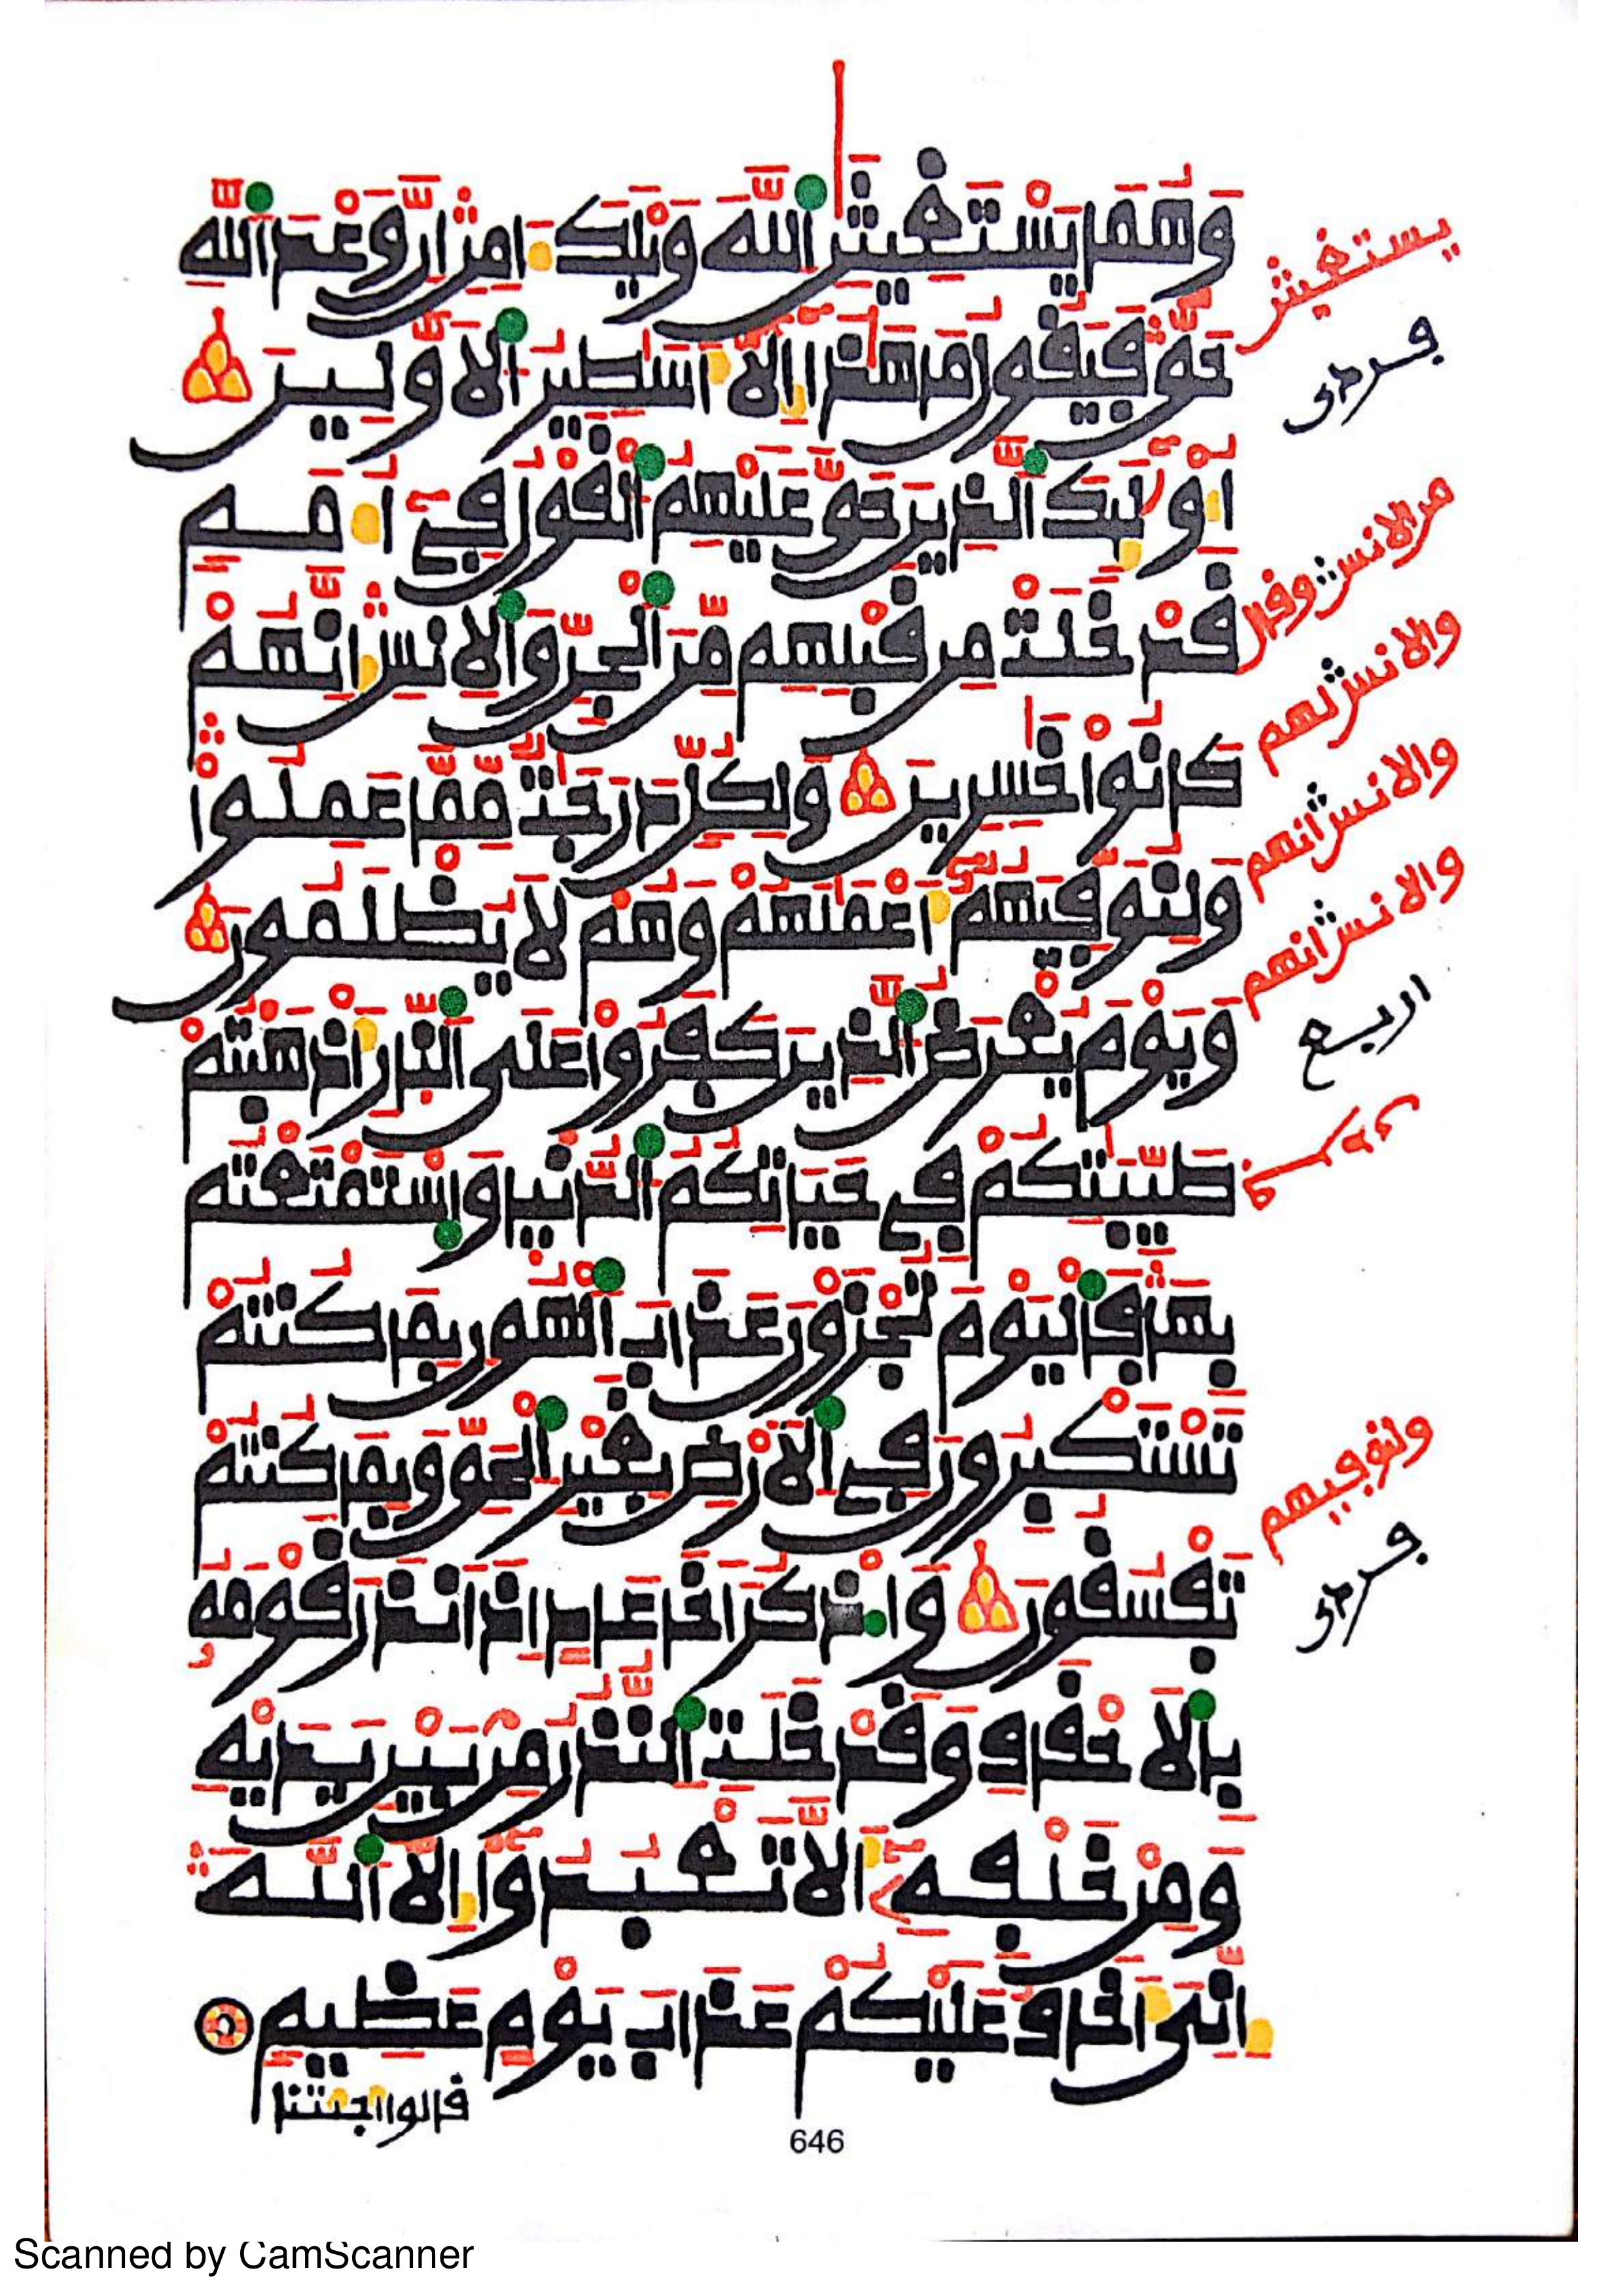 وَهُمَا يَسْتَغِيثَٰنِ اِ۬للَّهَ وَيْلَكَ ءَامِنِ اِنَّ وَعْدَ اَ۬للَّهِ
يستغيثن
حَقّٞ فَيَقُولُ مَا هَٰذَآ إِلَّآ أَسَٰطِيرُ اُ۬لَاوَّلِينَ
أُوْلَٰٓئِكَ اَ۬لذِينَ حَقَّ عَلَيْهِمُ اُ۬لْقَوْلُ فِےٓ أُمَمٖ
قَدْ خَلَتْ مِن قَبْلِهِم مِّنَ اَ۬لْجِنِّ وَالِانسِ إِنَّهُمْ
والانس انهم
كَانُواْ خَٰسِرِينَ وَلِكُلّٖ دَرَجَٰتٞ مِّمَّا عَمِلُواْ
والانس انهم
وَلِنُوَفِّيَهُمُۥٓ أَعْمَٰلَهُمْ وَهُمْ لَا يُظْلَمُونَ
والانس انهم
وَيَوْمَ يُعْرَضُ اُ۬لذِينَ كَفَرُواْ عَلَى اَ۬لنّ۪ارِ أَذْهَبْتُمْ
طَيِّبَٰتِكُمْ فِے حَيَاتِكُمُ اُ۬لدُّنْيَا وَاسْتَمْتَعْتُم
بِهَا فَالْيَوْمَ تُجْزَوْنَ عَذَابَ اَ۬لْهُونِ بِمَا كُنتُمْ
تَسْتَكْبِرُونَ فِے اِ۬لَارْضِ بِغَيْرِ اِ۬لْحَقِّ وَبِمَا كُنتُمْ
ولنوفيهم
تَفْسُقُونَ وَاذْكُرَ اَخَا عَادٍ اِذَ اَنذَرَ قَوْمَهُۥ
بِالَاحْقَافِ وَقَدْ خَلَتِ اِ۬لنُّذُرُ مِنۢ بَيْنِ يَدَيْهِ
وَمِنْ خَلْفِهِۦٓ أَلَّا تَعْبُدُوٓاْ إِلَّا اَ۬للَّهَ
إِنِّيَ أَخَافُ عَلَيْكُمْ عَذَابَ يَوْمٍ عَظِيمٖ
قالوا اجئتنا
646
Scanned by CamScanner